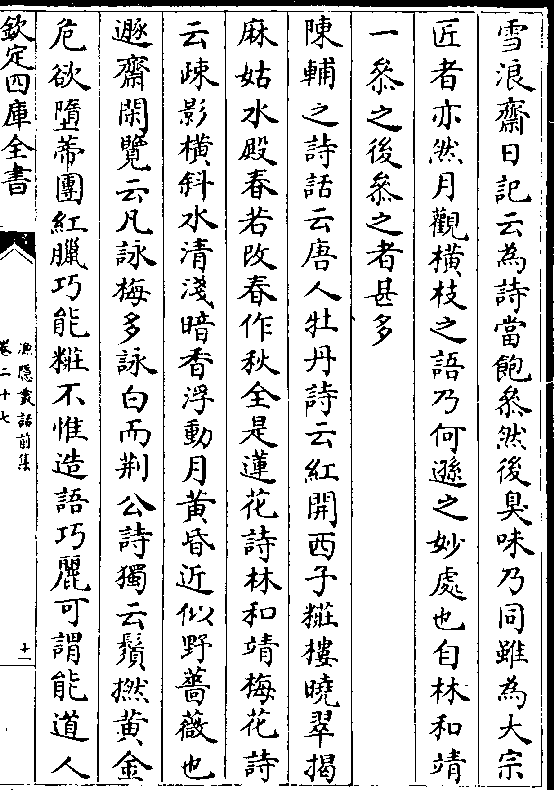 雪浪齋日記云為詩當飽叅然後臭味乃同雖為大宗
匠者亦然月觀横枝之語乃何遜之妙處也自林和靖
一叅之後叅之者甚多
陳輔之詩話云唐人牡丹詩云紅開西子粧樓曉翠揭
麻姑水殿春若改春作秋全是蓮花詩林和靖梅花詩
云疎影横斜水清淺暗香浮動月黄昏近似野薔薇也
遯齋閑覽云凡詠梅多詠白而荆公詩獨云鬚撚黄金
危欲墮蔕團紅臘巧能粧不惟造語巧麗可謂能道人
欽定四庫全書
漁隱叢話前集
卷二十七
十一